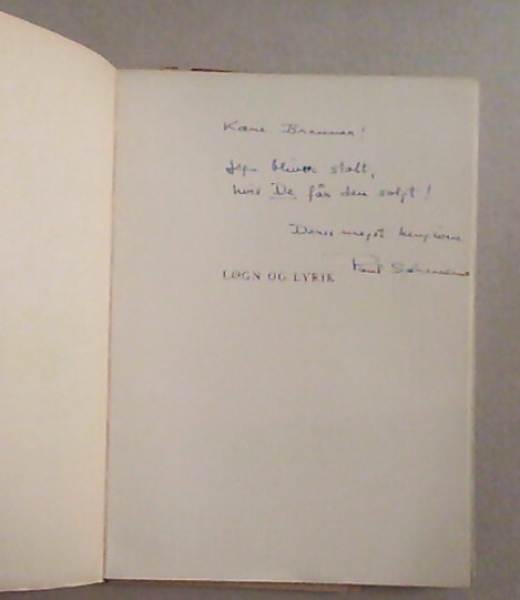 Kære Brammer!
Jeg bliver stolt,
hvis De får den solgt!
Deres meget hengivne
LØGN OG LYRIK